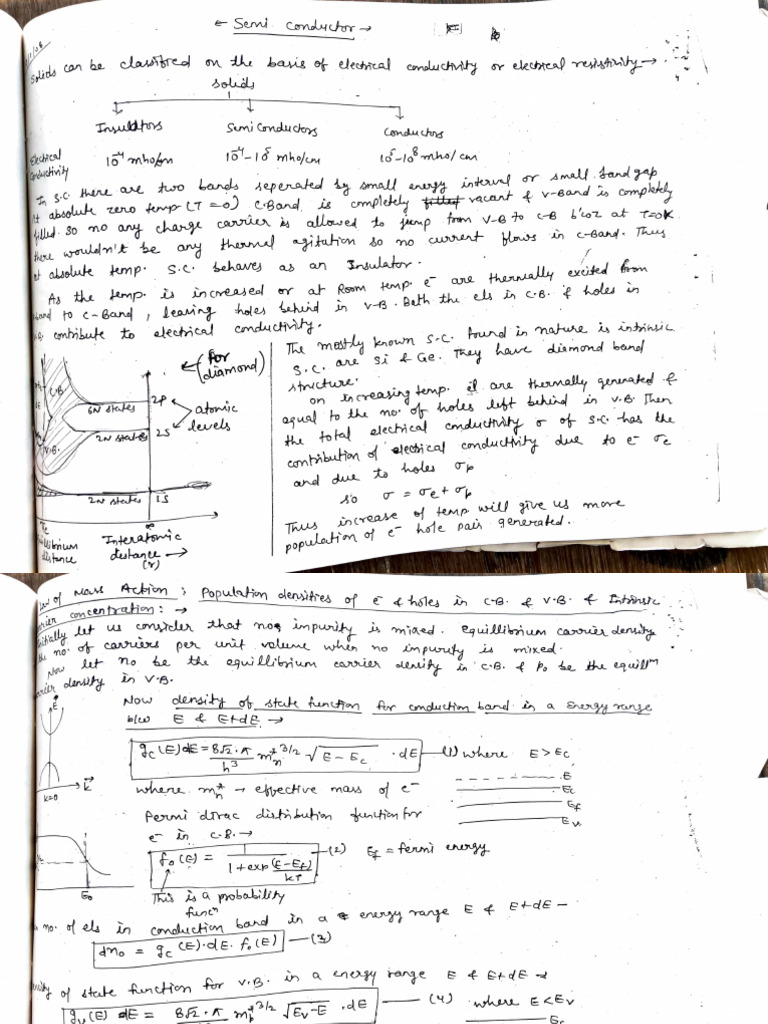 ← Semi conductor →
Solids can be classified on the basis of electrical conductivity or electrical resistivity →
Solids
Insulators Semi Conductors Conductors
Electrical Conductivity 10⁻⁴ mho/cm 10⁻⁴ – 10⁵ mho/cm 10⁵ – 10⁸ mho/cm
In S.C. there are two bands seperated by small energy interval or small band gap
At absolute zero temp (T=0) C-Band is completely vacant & V-Band is completely
filled. So no any charge carrier is allowed to jump from V-B to C-B b'coz at T=0K
there wouldn't be any thermal agitation so no current flows in C-Band. Thus
at absolute temp. S.C. behaves as an Insulator.
As the temp. is increased or at Room temp e⁻ are thermally excited from
band to C-Band, leaving holes behind in V-B. Both the els in C.B. & holes in
contribute to electrical conductivity.
← (For diamond)
C.B.
V.B.
6N states 2P
2N states 2S
← atomic levels
2N states 1S
∞
Equilibrium distance
Interatomic distance → (r)
The mostly known S.C. found in nature is intrinsic
S.C. are Si & Ge. They have diamond band
structure.
on increasing temp. el are thermally generated &
equal to the no. of holes left behind in V.B. Then
the total electrical conductivity σ of S.C. has the
contribution of electrical conductivity due to e⁻ σe
and due to holes σp
so σ = σe + σp
Thus increase of temp will give us more
population of e⁻ hole pair generated.
Law of Mass Action; Population densities of e⁻ & holes in C-B. & V.B. & Intrinsic
carrier concentration: →
Initially let us consider that no impurity is mixed. equillibrium carrier density
the no. of carriers per unit volume when no impurity is mixed.
Now let no be the equillibrium carrier density in C.B. & Po be the equillᵐ
carrier density in V.B.
Now density of state function for conduction band in a energy range
b/w E & E+dE →
gc(E)dE = 8√2·π/h³ mn*³/² √E-Ec · dE —(1) where E > Ec
where mn* → effective mass of e⁻
E
Ec
Ef
Ev
E
k=0
k
fermi dirac distribution function for
e⁻ in C.B. →
fo(E) = 1/1+exp(E-Ef)/kT —(2) Ef = fermi energy
Eo
This is a probability
funcⁿ
no. of els in conduction band in a energy range E & E+dE –
dno = gc(E)·dE. fo(E) —(3)
density of state function for V.B. in a energy range E & E+dE →
gv(E) dE = 8√2·π mp*³/² √Ev-E · dE —(4) where E < Ev